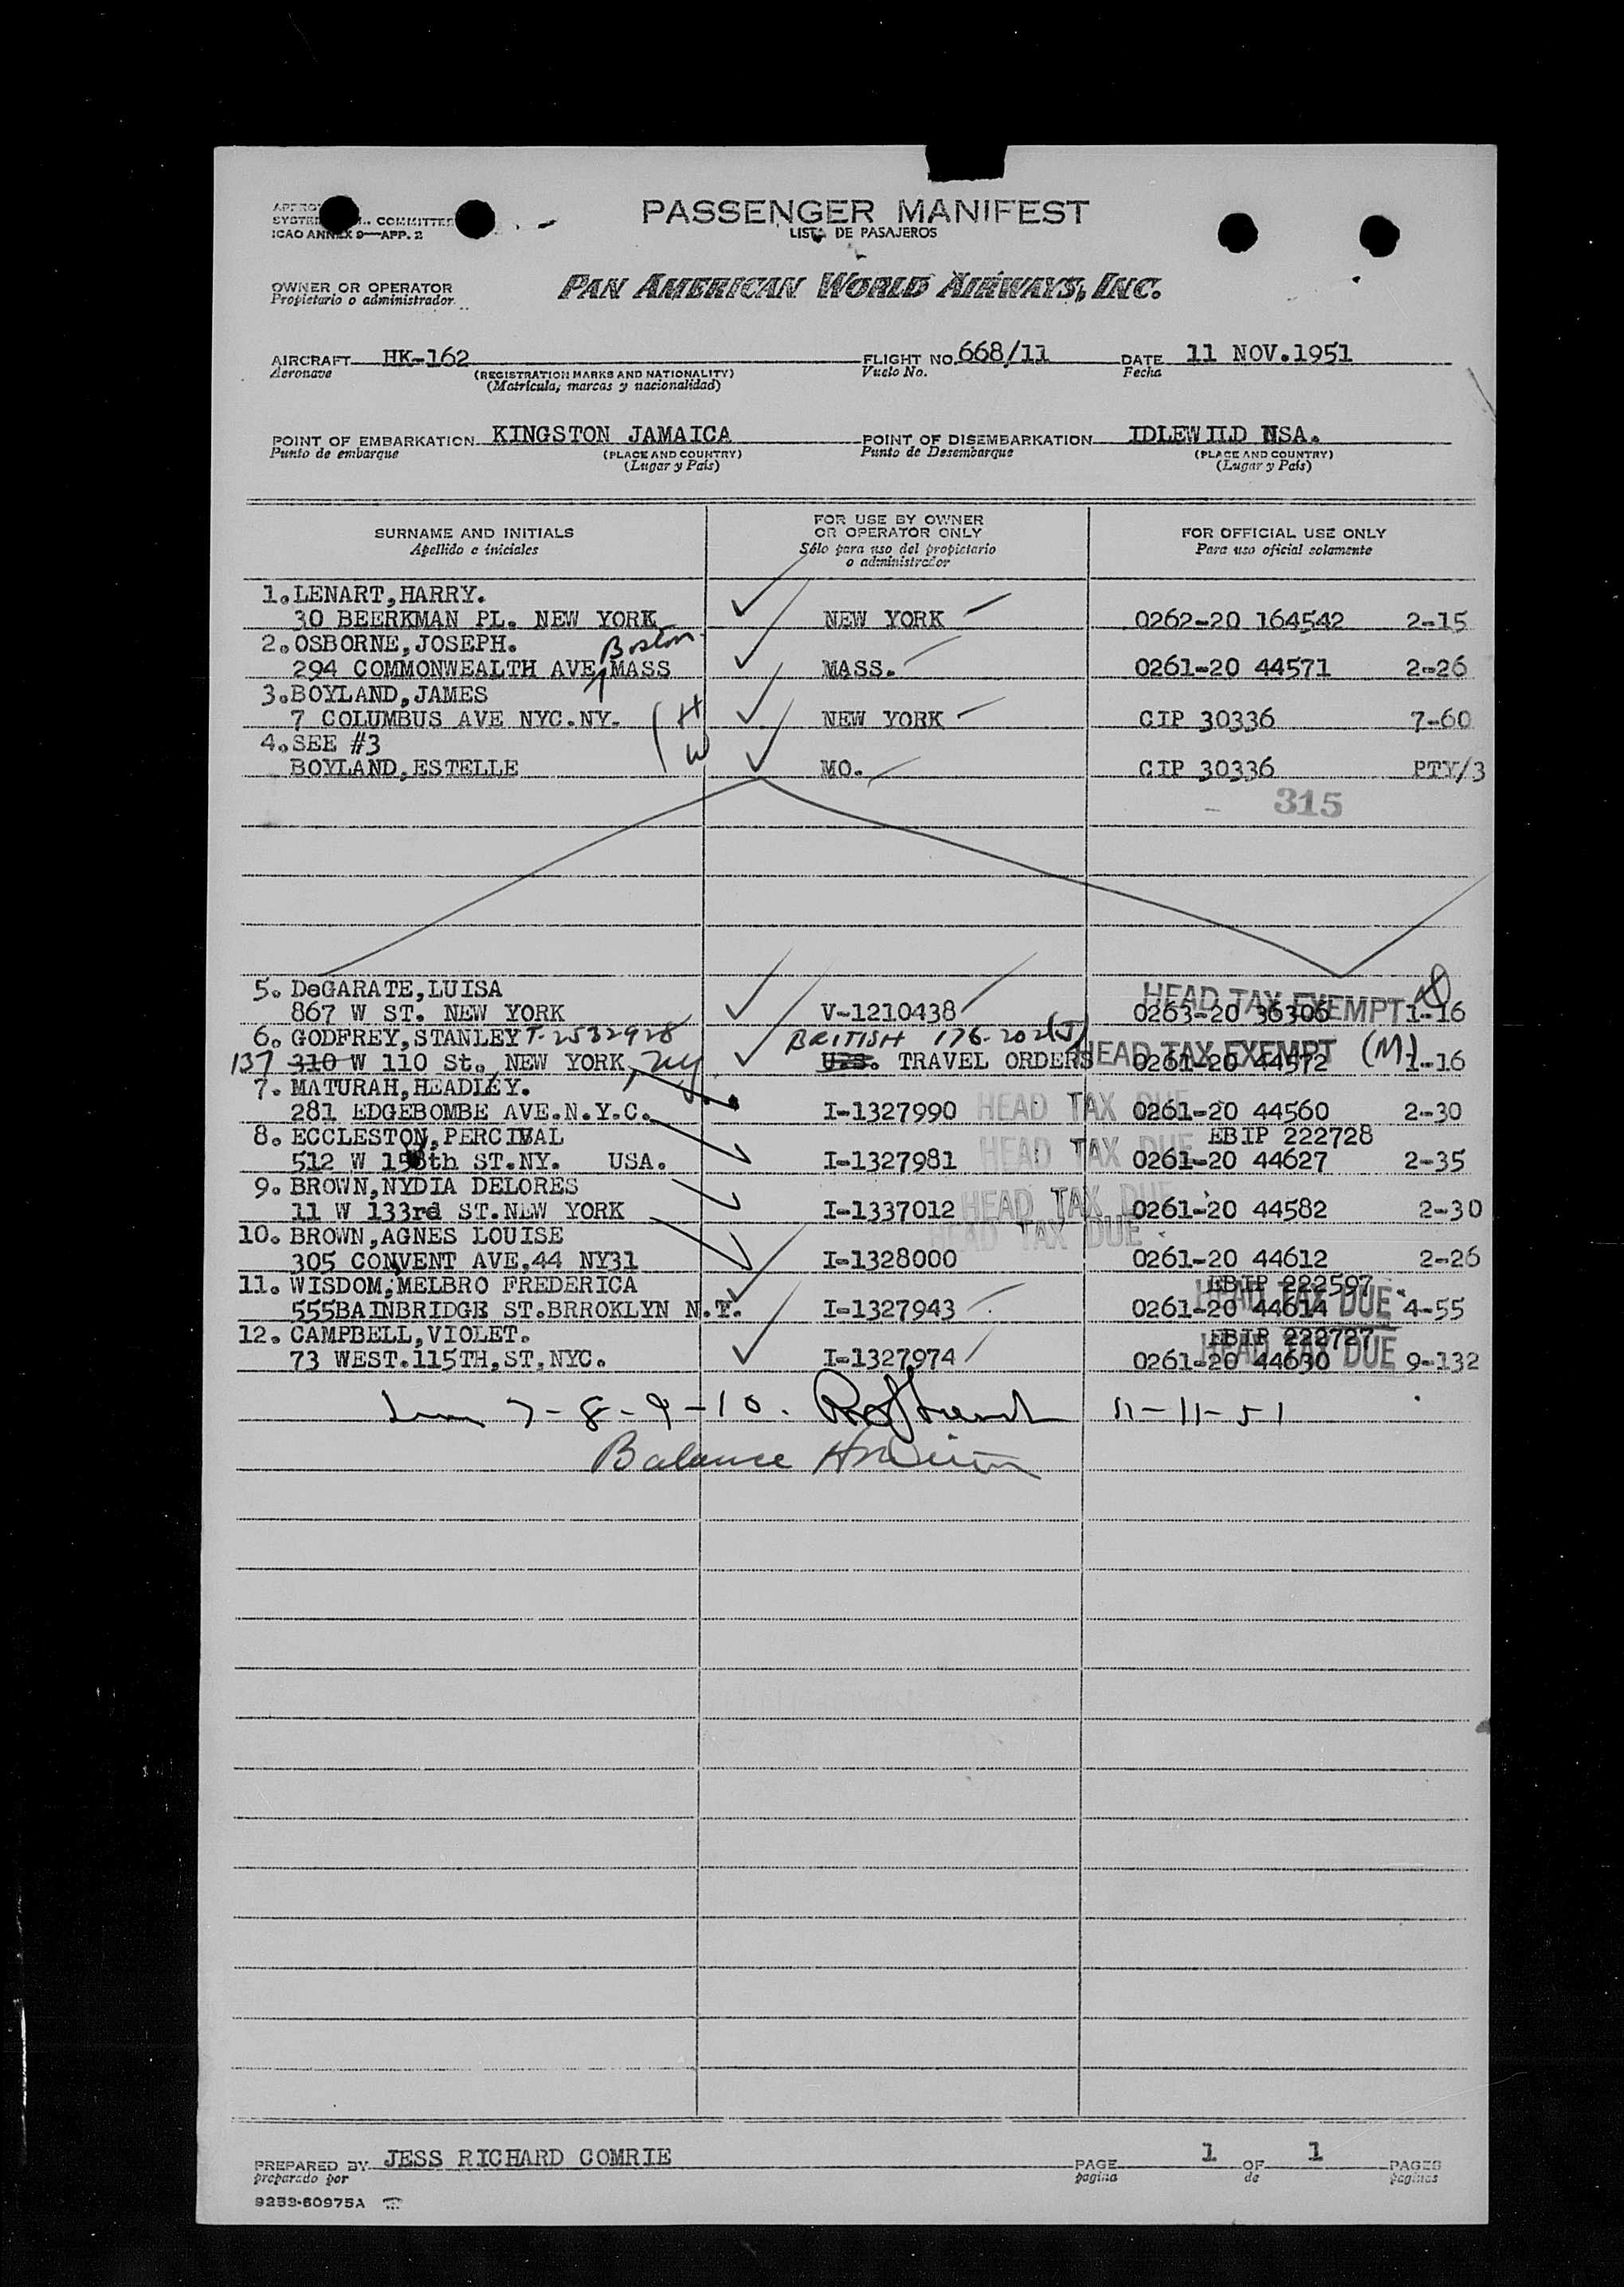 PASSENGER MANIFEST
LISTA DE PASAJEROS
COMMITTEE
ICAO ANNEX 9—APP. 2
OWNER OR OPERATOR
Propietario o administrador
PAN AMERICAN WORLD AIRWAYS, INC.
AIRCRAFT HK-162 FLIGHT NO. 668/11 DATE 11 NOV.1951
Aeronave (REGISTRATION MARKS AND NATIONALITY) Vuelo No. Fecha
(Matrícula, marcas y nacionalidad)
POINT OF EMBARKATION KINGSTON JAMAICA POINT OF DISEMBARKATION IDLEWILD USA.
Punto de embarque (PLACE AND COUNTRY) Punto de Desembarque (PLACE AND COUNTRY)
(Lugar y País) (Lugar y País)
SURNAME AND INITIALS FOR USE BY OWNER OR OPERATOR ONLY FOR OFFICIAL USE ONLY
Apellido e iniciales Sólo para uso del propietario o administrador Para uso oficial solamente
1. LENART,HARRY.
30 BEERKMAN PL. NEW YORK NEW YORK 0262-20 164542 2-15
2. OSBORNE,JOSEPH. Boston
294 COMMONWEALTH AVE, MASS MASS. 0261-20 44571 2-26
3. BOYLAND,JAMES
7 COLUMBUS AVE NYC.NY. H NEW YORK CIP 30336 7-60
4. SEE #3 W
BOYLAND,ESTELLE MO. CIP 30336 PTY/3
315
5. DeGARATE,LUISA HEAD TAX EXEMPT
867 W ST. NEW YORK V-1210438 0263-20 36306 1-16
6. GODFREY,STANLEY T-2532928 BRITISH 176-202(J)
137 310 W 110 St., NEW YORK, NY U.S. TRAVEL ORDERS HEAD TAX EXEMPT (M) 0261-20 44572 1-16
7. MATURAH,HEADLEY.
281 EDGEBOMBE AVE.N.Y.C. I-1327990 HEAD TAX DUE 0261-20 44560 2-30
8. ECCLESTON,PERCIVAL EBIP 222728
512 W 158th ST.NY. USA. I-1327981 HEAD TAX DUE 0261-20 44627 2-35
9. BROWN,NYDIA DELORES
11 W 133rd ST.NEW YORK I-1337012 HEAD TAX DUE 0261-20 44582 2-30
10. BROWN,AGNES LOUISE HEAD TAX DUE
305 CONVENT AVE,44 NY31 I-1328000 0261-20 44612 2-26
11. WISDOM,MELBRO FREDERICA EBIP 222597
555BAINBRIDGE ST.BRROKLYN N.Y. I-1327943 HEAD TAX DUE 0261-20 44614 4-55
12. CAMPBELL,VIOLET. EBIP 222727
73 WEST.115TH,ST,NYC. I-1327974 HEAD TAX DUE 0261-20 44630 9-132
7-8-9-10. 11-11-51
Balance
PREPARED BY JESS RICHARD COMRIE PAGE 1 OF 1 PAGES
preparado por pagina de paginas
9253-60975A